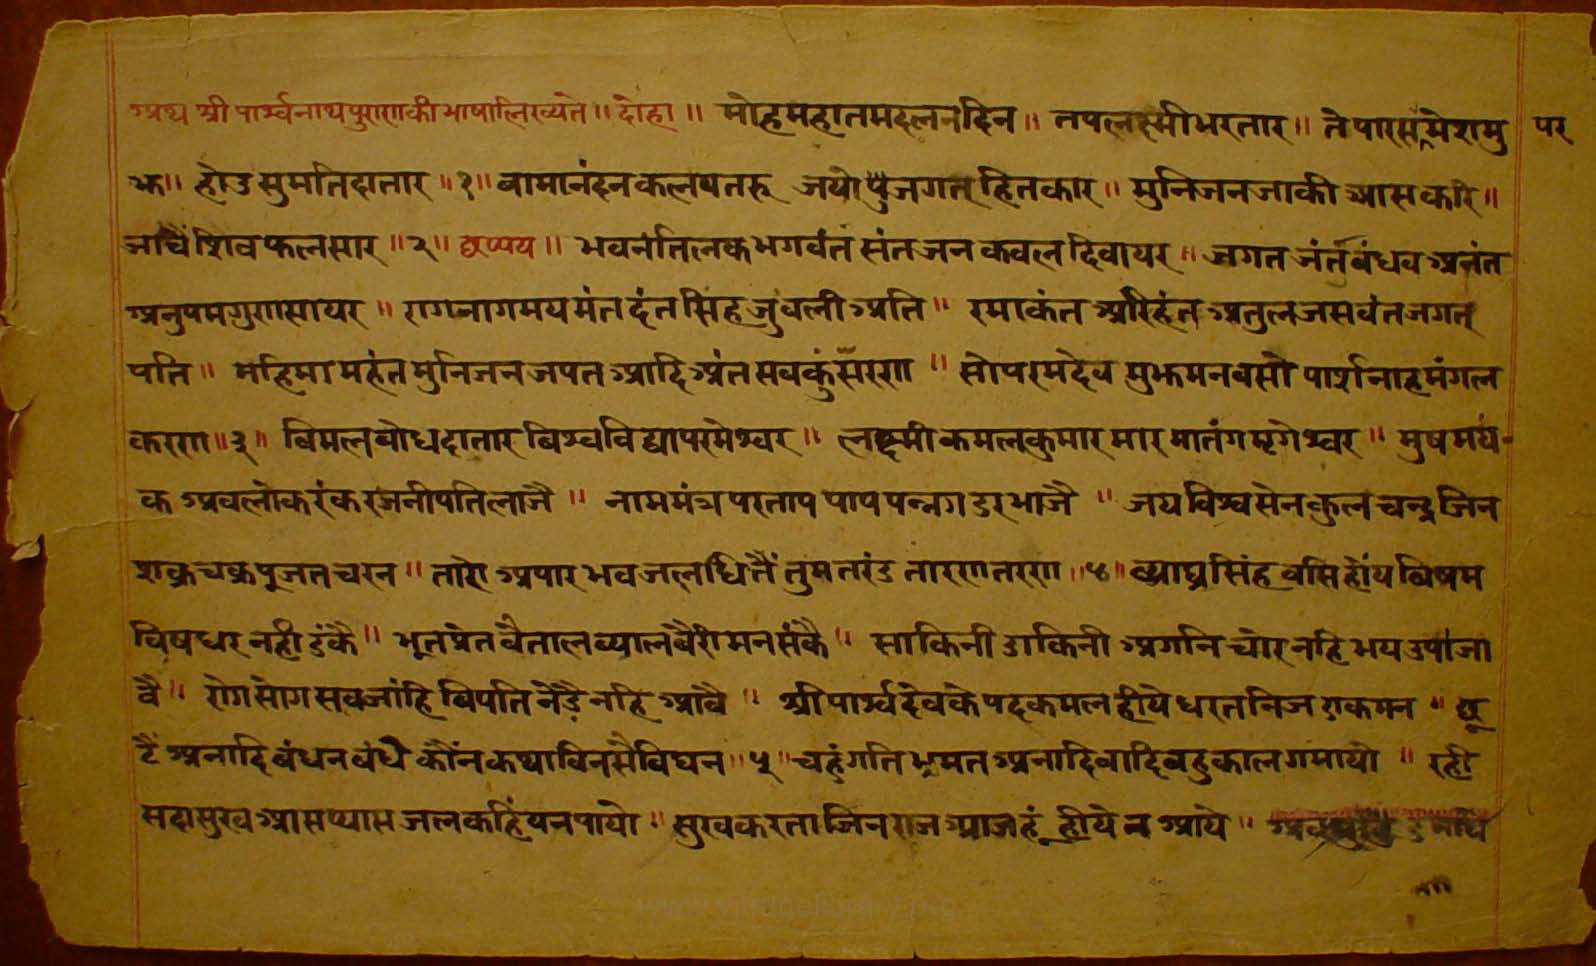 अथ श्री पार्श्वनाथ पुराण की भाषा लिख्यते ॥ दोहा ॥ मोह महातम दलन दिन ॥ तप लक्ष्मी भरतार ॥ ते पारस परमेश मु
झ ॥ होउ सुमति दातार ॥ १ ॥ वामानंदन कलपतरु जयो जगत हितकार ॥ मुनि जन जाकी आस करि ॥
जाचैं शिव फल सार ॥ २ ॥ छप्पय ॥ भवन तिलक भगवंत संत जन कवल दिवायर ॥ जगत जंतु बंधव अनंत
अनुपम गुण सायर ॥ राग नाग मय मंत दंत सिंह जु वली अति ॥ रमाकंत अरिहंत अतुल जसवंत जगत
पति ॥ महिमा महंत मुनि जन जपत आदि अंत सव कुं सरण ॥ सो परम देव मुझ मन वसो पार्शनाह मंगल
करण ॥ ३ ॥ विमल बोध दातार विश्व विद्या परमेश्वर ॥ लक्ष्मी कमल कुमार मार मातंग मृगेश्वर ॥ मुष मयं
क अवलोक रंक रजनीपति लाजै ॥ नाम मंत्र परताप पाप पन्नग डर भाजै ॥ जय विश्वसेन कुल चन्द्र जिन
शक्र चक्र पूजत चरन ॥ तारो अपार भव जलधि तैं तुम तरंड तारण तरण ॥ ४ ॥ व्याघ्र सिंह वसि होंय विषम
विषधर नही डंकै ॥ भूत प्रेत वैताल व्याल वैरी मन संकै ॥ साकिनी डाकिनी अगनि चोर नहि भय उपजा
वै ॥ रोग सोग सव जांहि विपति नेडै नहि आवै ॥ श्री पार्श्व देव के पद कमल हीये धरत निज एक मन ॥ छू
टैं अनादि बंधन बंधे कौंन कथा विनसै विघन ॥ ५ ॥ चहूं गति भ्रमत अनादि वादि बहु काल गमायो ॥ रही
सदा सुख आस प्यास जल कहिंयन पायो ॥ सुख करता जिनराज आज हूं हीये न आये ॥